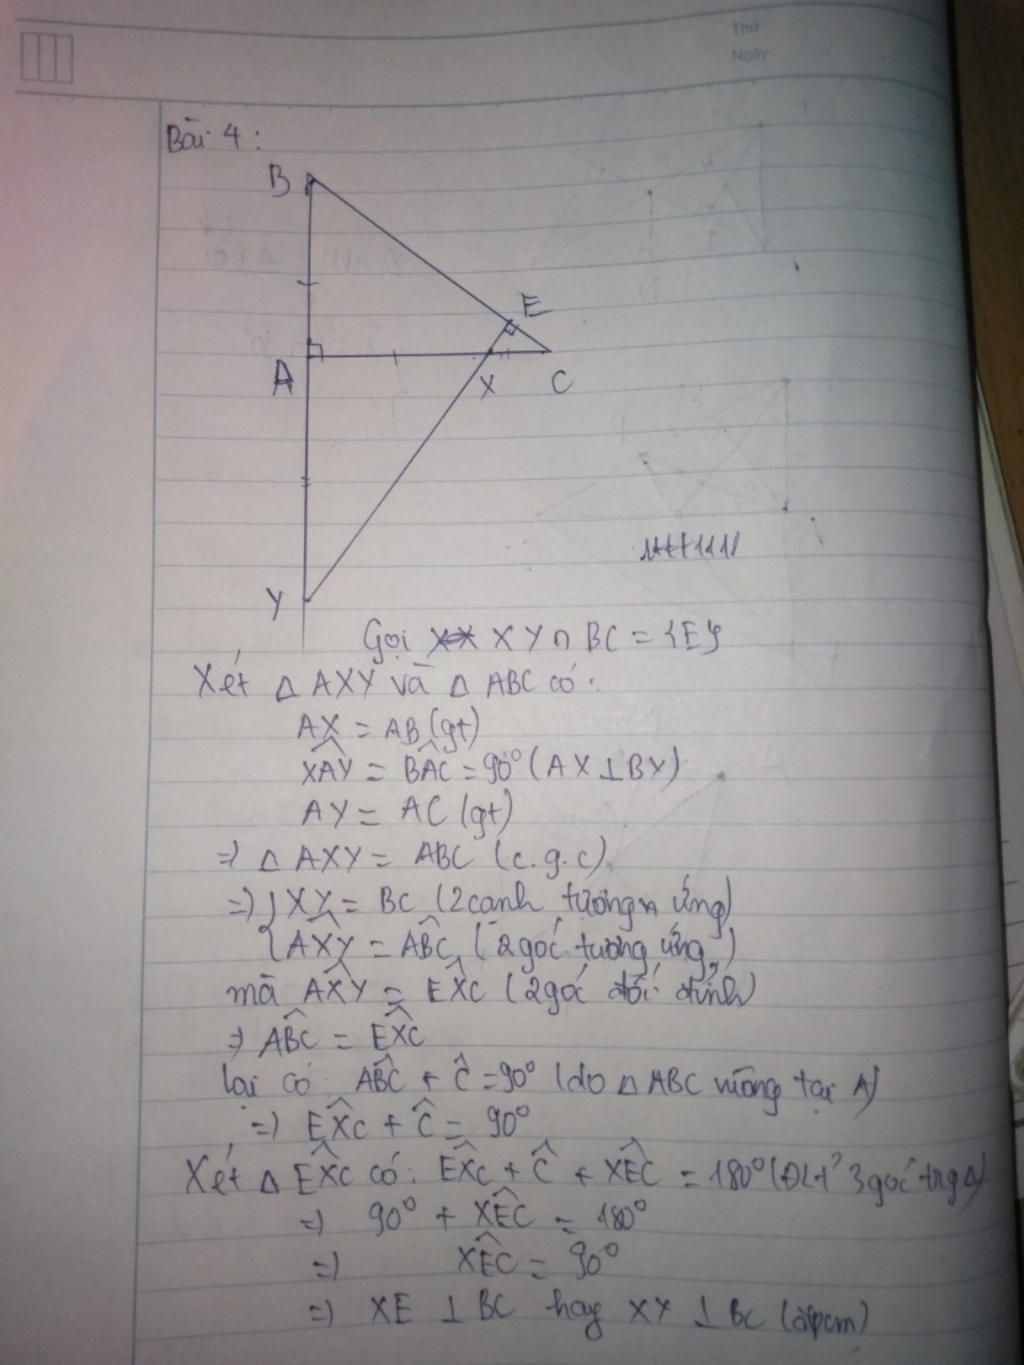 Thứ
Ngày
Bài 4:
B
E
A
X
C
Y
Gọi XY ∩ BC = {E}
Xét Δ AXY và Δ ABC có:
AX = AB (gt)
XAY^ = BAC^ = 90° (AX ⊥ BY)
AY = AC (gt)
=> Δ AXY = ABC (c.g.c)
=> { XY = BC (2 cạnh tương ứng)
{ AXY^ = ABC^ (2 góc tương ứng)
mà AXY^ = EXC^ (2 góc đối đỉnh)
=> ABC^ = EXC^
lại có ABC^ + C^ = 90° (do Δ ABC vuông tại A)
=> EXC^ + C^ = 90°
Xét Δ EXC^ có: EXC^ + C^ + XEC^ = 180° (ĐL t² 3 góc trg Δ)
=> 90° + XEC^ = 180°
=> XEC^ = 90°
=> XE ⊥ BC hay XY ⊥ BC (đpcm)